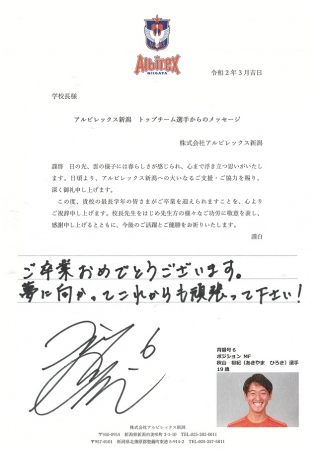 Albirex
NIIGATA
令和2年3月吉日
学校長様
アルビレックス新潟 トップチーム選手からのメッセージ
株式会社アルビレックス新潟
謹啓 日の光、雲の様子には春らしさが感じられ、心まで浮き立つ思いがいたします。日頃より、アルビレックス新潟への大いなるご支援・ご協力を賜り、
深く御礼申し上げます。
この度、貴校の最高学年の皆さまがご卒業を迎えられますことを、心より
ご祝辞申し上げます。校長先生をはじめ先生方の様々なご功労に敬意を表し、
感謝申し上げるとともに、今後のご活躍とご健勝をお祈りいたします。
謹白
ご卒業おめでとうございます。
夢に向かってこれからも頑張って下さい!
6
背番号6
ポジション MF
秋山 裕紀(あきやま ひろき)選手
19歳
株式会社アルビレックス新潟